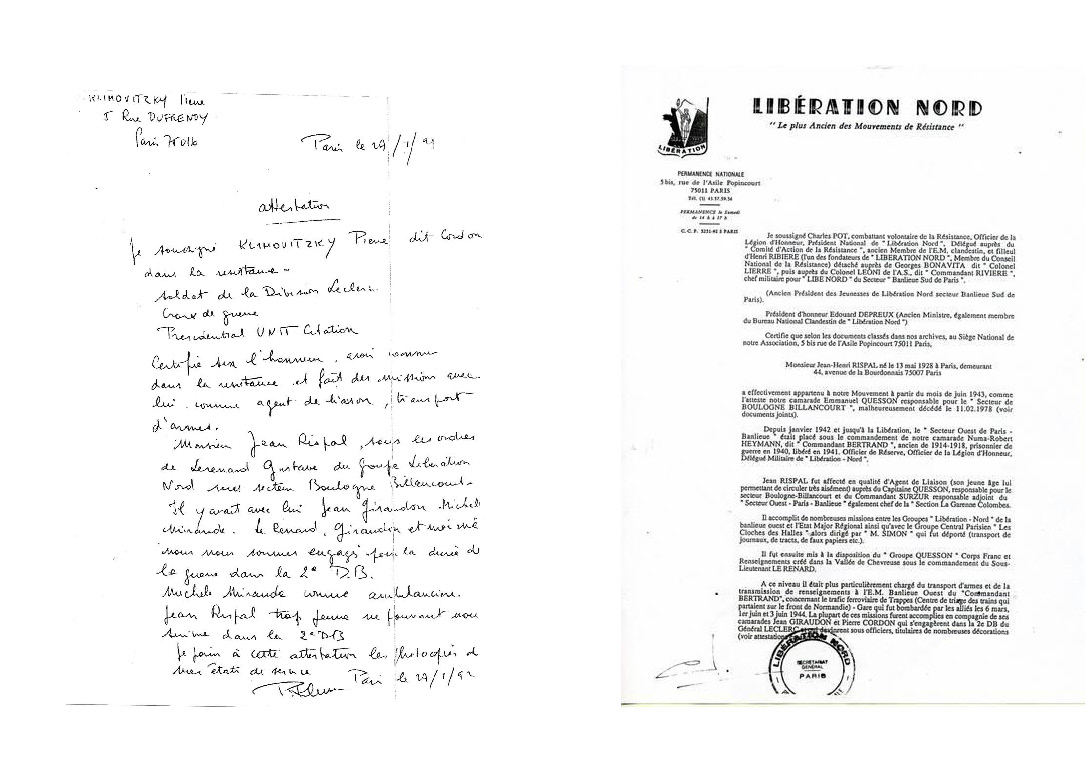 KLIMOVITZKY Pierre
5 Rue DUFRENOY
Paris 75016
Paris le 29/1/92
attestation
Je soussigné KLIMOVITZKY Pierre dit Cordon
dans la resistance -
soldat de la Division Leclerc
Croix de guerre
Presidential UNIT Citation
Certifie sur l'honneur, avoir connu
dans la resistance et fait des mission avec
lui comme agent de liaison, transport
d'armes.
Monsieur Jean Rispal, sous les ordres
de Lerenard Gustave du Groupe Liberation
Nord secteur Boulogne Billancourt.
Il y avait avec lui Jean Girandon Michele
Mirande. Le Renard, Girandon et moi mê
nous nous sommes engagés pour la durée de
la guerre dans la 2e D.B.
Michele Mirande comme ambulancière.
Jean Rispal trop jeune ne pouvant nous
suivre dans la 2e DB
Je joins à cette attestation les photocopies de
mes états de service
Paris le 29/1/92
LIBÉRATION NORD
" Le plus Ancien des Mouvements de Résistance "
LIBÉRATION
PERMANENCE NATIONALE
5 bis, rue de l'Asile Popincourt
75011 PARIS
Tél. (1) 43.57.59.56
PERMANENCE le Samedi
de 14 h à 17 h
C.C.P. 5231-92 S PARIS
Je soussigné Charles POT, combattant volontaire de la Résistance, Officier de la
Légion d'Honneur, Président National de " Libération Nord ", Délégué auprès du
" Comité d'Action de la Résistance ", ancien Membre de l'E.M. clandestin, et filleul
d'Henri RIBIERE (l'un des fondateurs de " LIBERATION NORD ", Membre du Conseil
National de la Résistance) détaché auprès de Georges BONAVITA dit " Colonel
LIERRE ", puis auprès du Colonel LEONI de l'A.S., dit " Commandant RIVIERE ",
chef militaire pour " LIBE NORD " du Secteur " Banlieue Sud de Paris ".
(Ancien Président des Jeunesses de Libération Nord secteur Banlieue Sud de
Paris).
Président d'honneur Edouard DEPREUX (Ancien Ministre, également membre
du Bureau National Clandestin de " Libération Nord ")
Certifie que selon les documents classés dans nos archives, au Siège National de
notre Association, 5 bis rue de l'Asile Popincourt 75011 Paris,
Monsieur Jean-Henri RISPAL né le 13 mai 1928 à Paris, demeurant
44, avenue de la Bourdonnais 75007 Paris
a effectivement appartenu à notre Mouvement à partir du mois de juin 1943, comme
l'atteste notre camarade Emmanuel QUESSON responsable pour le " Secteur de
BOULOGNE BILLANCOURT ", malheureusement décédé le 11.02.1978 (voir
documents joints).
Depuis janvier 1942 et jusqu'à la Libération, le " Secteur Ouest de Paris -
Banlieue " était placé sous le commandement de notre camarade Numa-Robert
HEYMANN, dit " Commandant BERTRAND ", ancien de 1914-1918, prisonnier de
guerre en 1940, libéré en 1941. Officier de Réserve, Officier de la Légion d'Honneur,
Délégué Militaire de " Libération - Nord ".
Jean RISPAL fut affecté en qualité d'Agent de Liaison (son jeune âge lui
permettant de circuler très aisément) auprès du Capitaine QUESSON, responsable pour le
secteur Boulogne-Billancourt et du Commandant SURZUR responsable adjoint du
" Secteur Ouest - Paris - Banlieue " également chef de la " Section La Garenne Colombes.
Il accomplit de nombreuses missions entre les Groupes " Libération - Nord " de la
banlieue ouest et l'Etat Major Régional ainsi qu'avec le Groupe Central Parisien " Les
Cloches des Halles " alors dirigé par " M. SIMON " qui fut déporté (transport de
journaux, de tracts, de faux papiers etc.).
Il fut ensuite mis à la disposition du " Groupe QUESSON " Corps Franc et
Renseignements créé dans la Vallée de Chevreuse sous le commandement du Sous-
Lieutenant LE RENARD.
A ce niveau il était plus particulièrement chargé du transport d'armes et de la
transmission de renseignements à l'E.M. Banlieue Ouest du "Commandant
BERTRAND", concernant le trafic ferroviaire de Trappes (Centre de triage des trains qui
partaient sur le front de Normandie) - Gare qui fut bombardée par les alliés les 6 mars,
1er juin et 3 juin 1944. La plupart de ces missions furent accomplies en compagnie de ses
camarades Jean GIRAUDON et Pierre CORDON qui s'engagèrent dans la 2e DB du
Général LECLERC et devinrent sous officiers, titulaires de nombreuses décorations
(voir attestation
LIBERATION NORD
SECRETARIAT
GÉNÉRAL
PARIS